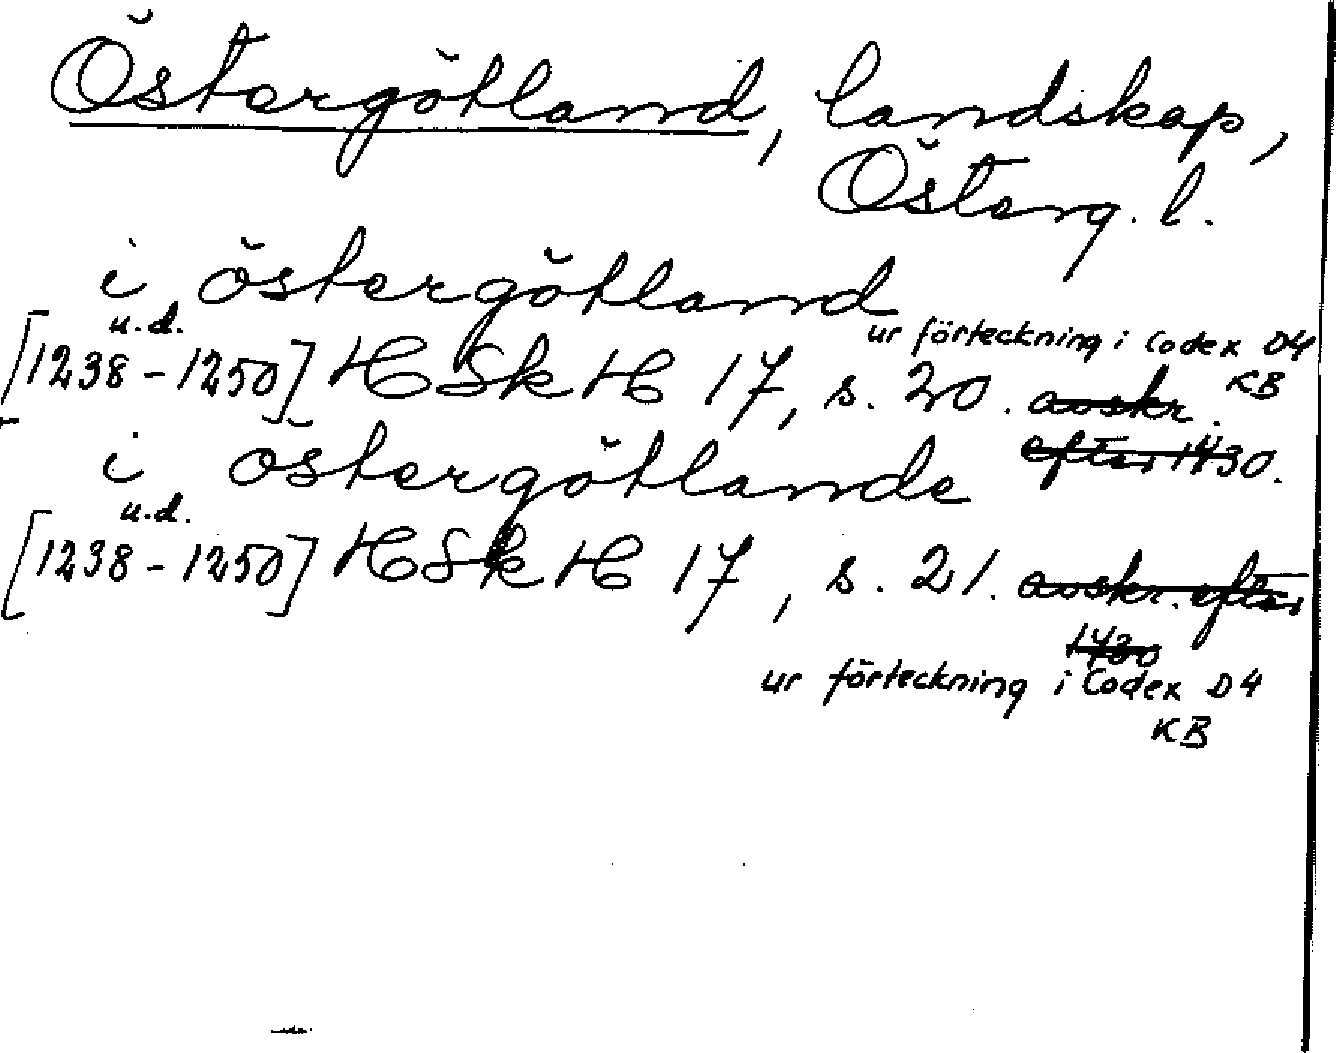 Östergötland, landskap,
Österg. l.
i östergötland
u.d.
[1238-1250] HSkH 17, s. 20. avskr.
ur förteckning i Codex D4
KB
efter 1430.
i östergötlande
u.d.
[1238-1250] HSkH 17, s. 21. avskr. efter
1430
ur förteckning i Codex D4
KB